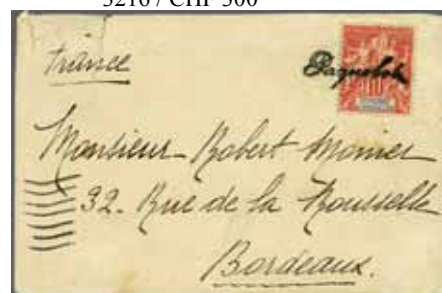 3216 / CHF 300
France
Paquebot
10
Monsieur Robert Monier
32. Rue de la Rousselle
Bordeaux.